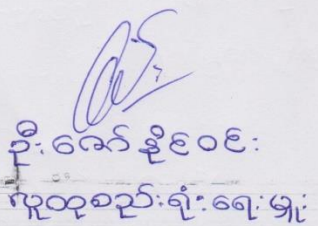 ဦးဇော်နိုင်ဝင်း
လူထုစည်းရုံးရေးမှူး